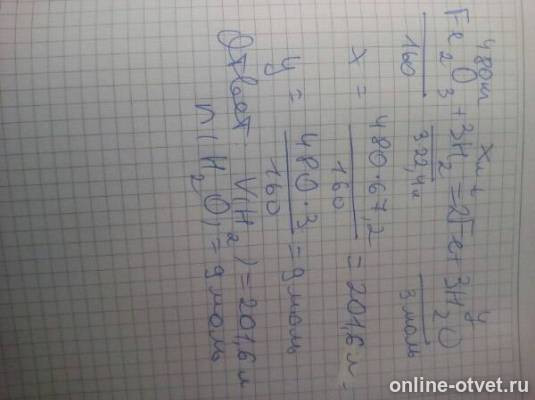 480 г x л y
Fe2O3 + 3H2 = 2Fe + 3H2O
160 3·22,4 л 3 моль
x = 480·67,2 / 160 = 201,6 л
y = 480·3 / 160 = 9 моль
Ответ V(H2) = 201,6 л
n(H2O) = 9 моль
online-otvet.ru